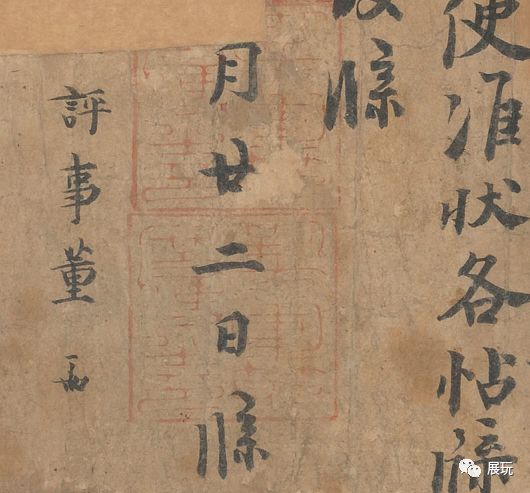 使准状各帖牒
牒
月廿二日牒
評事董
展玩